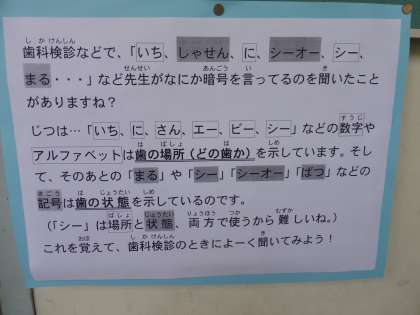 歯科検診などで、「いち、しゃせん、に、シーオー、シー、
まる・・・」など先生がなにか暗号を言ってるのを聞いたこと
がありますね?
じつは…「いち、に、さん、エー、ビー、シー」などの数字や
アルファベットは歯の場所(どの歯か)を示しています。そし
て、そのあとの「まる」や「シー」「シーオー」「ばつ」などの
記号は歯の状態を示しているのです。
(「シー」は場所と状態、両方で使うから難しいね。)
これを覚えて、歯科検診のときによーく聞いてみよう!